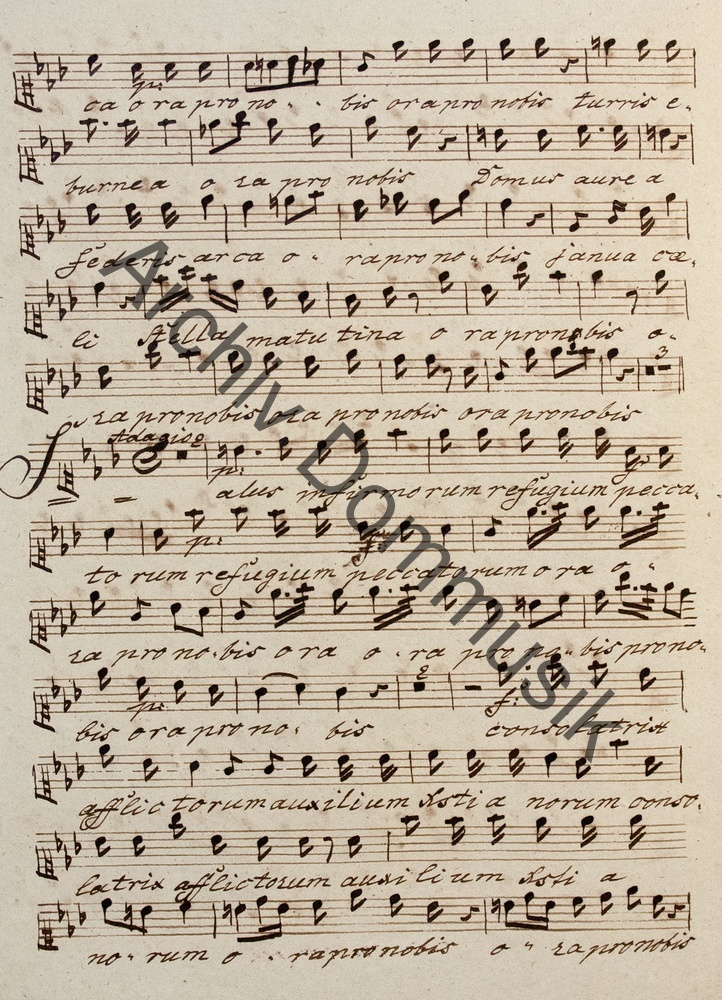 p:
ca o ra pro no - - bis ora pro nobis turris e-
burne a o ra pro nobis Domus aure a
federis arca o - ra pro no - bis janua cæ-
li stella matutina o ra pro nobis o-
3
ra pro nobis ora pro nobis ora pro nobis
Adagio
p: f
Salus infirmorum refugium pecca-
p:
to rum refugium peccatorum o ra o -
ra pro no - bis o ra o - ra pro no - bis pro no-
p: 2 f:
bis ora pro no - bis consolatrix
afflic torum auxilium Xsti a norum conso-
latrix afflictorum auxilium Xsti a
no - rum o - ra pro nobis o - ra pro nobis
Archiv Dommusik